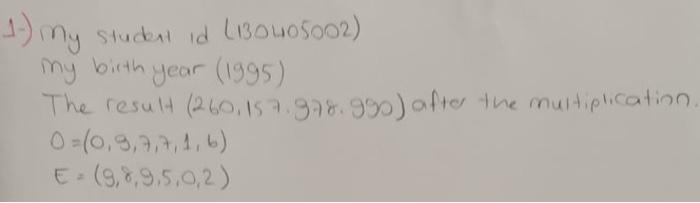 1-) My student id (130405002)
My birth year (1995)
The result (260.157.978.990) after the multiplication.
O=(0,9,7,7,1,6)
E=(9,8,9,5,0,2)